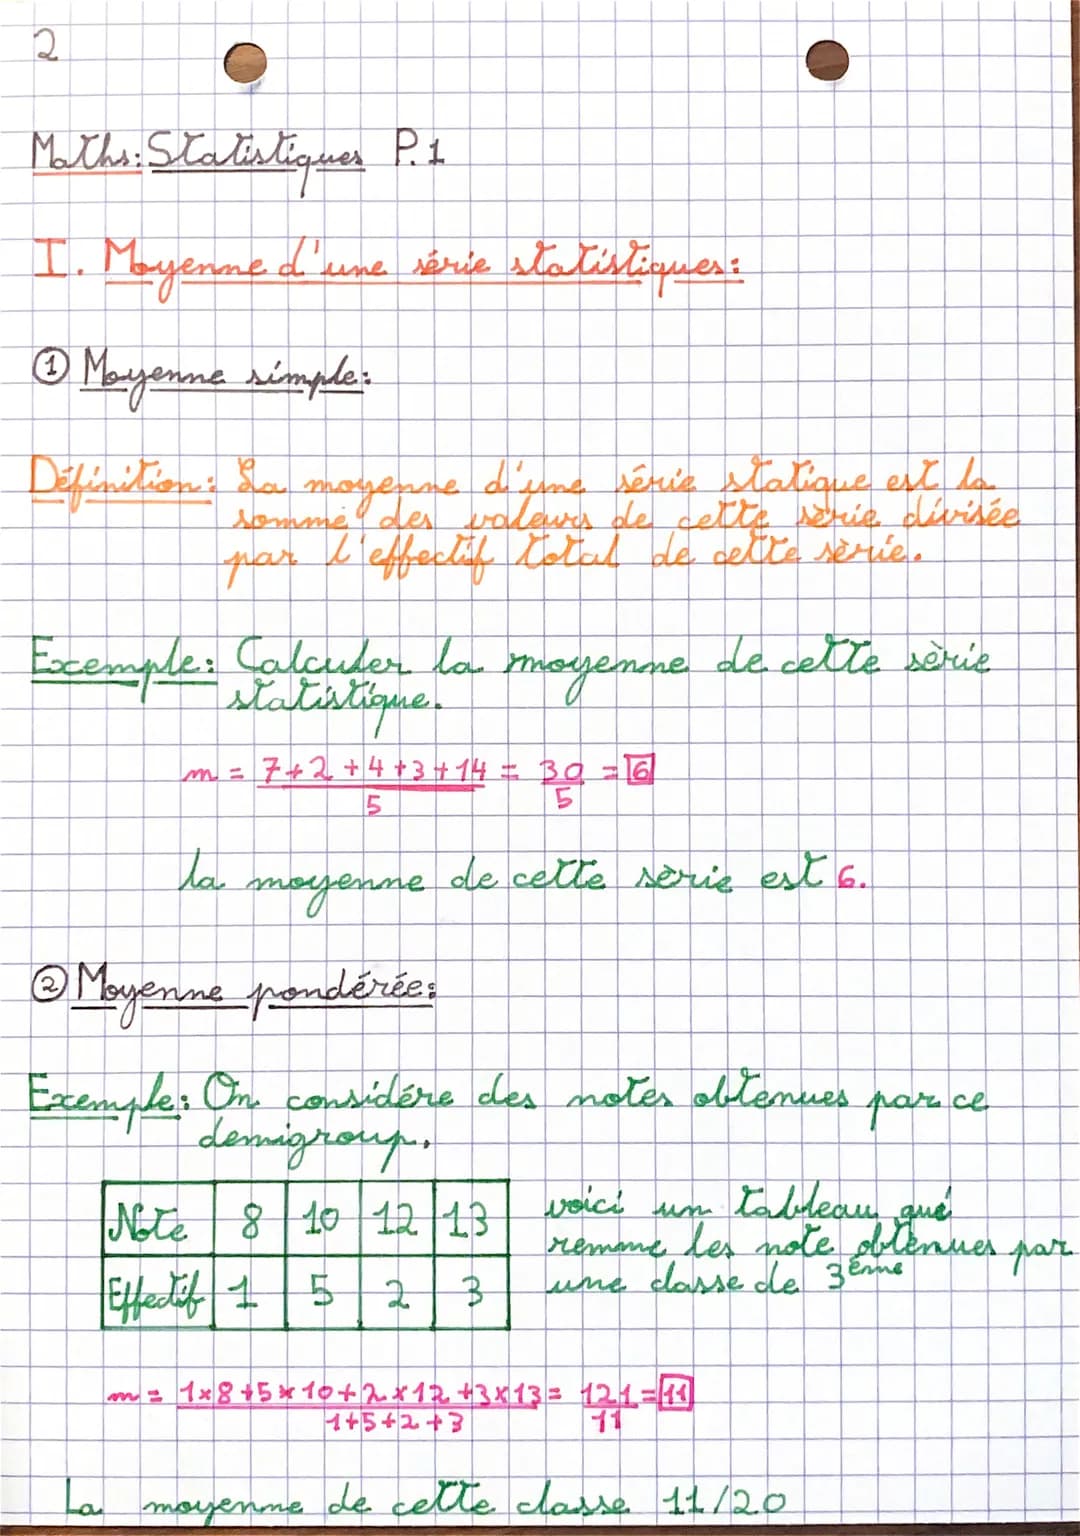 2
Maths: Statistiques P.1
I. Moyenne d'une série statistiques:
① Moyenne simple:
Définition: La moyenne d'une série statique est la
somme des valeurs de cette sèrie divisée
par l'effectif total de cette sèrie.
Exemple: Calculer la moyenne de cette sèrie
statistique.
m = 7+2+4+3+14 = 30 = 6
5 5
la moyenne de cette sèrie est 6.
② Moyenne pondérée:
Exemple: On considére des notes obtenues par ce
demigroup.
Note 8 10 12 13
Effectif 1 5 2 3
voici un tableau qué
remme les note obtenues par
une classe de 3ème
m = 1×8+5×10+2×12+3×13 = 121 = 11
1+5+2+3 11
La moyenne de cette classe 11/20